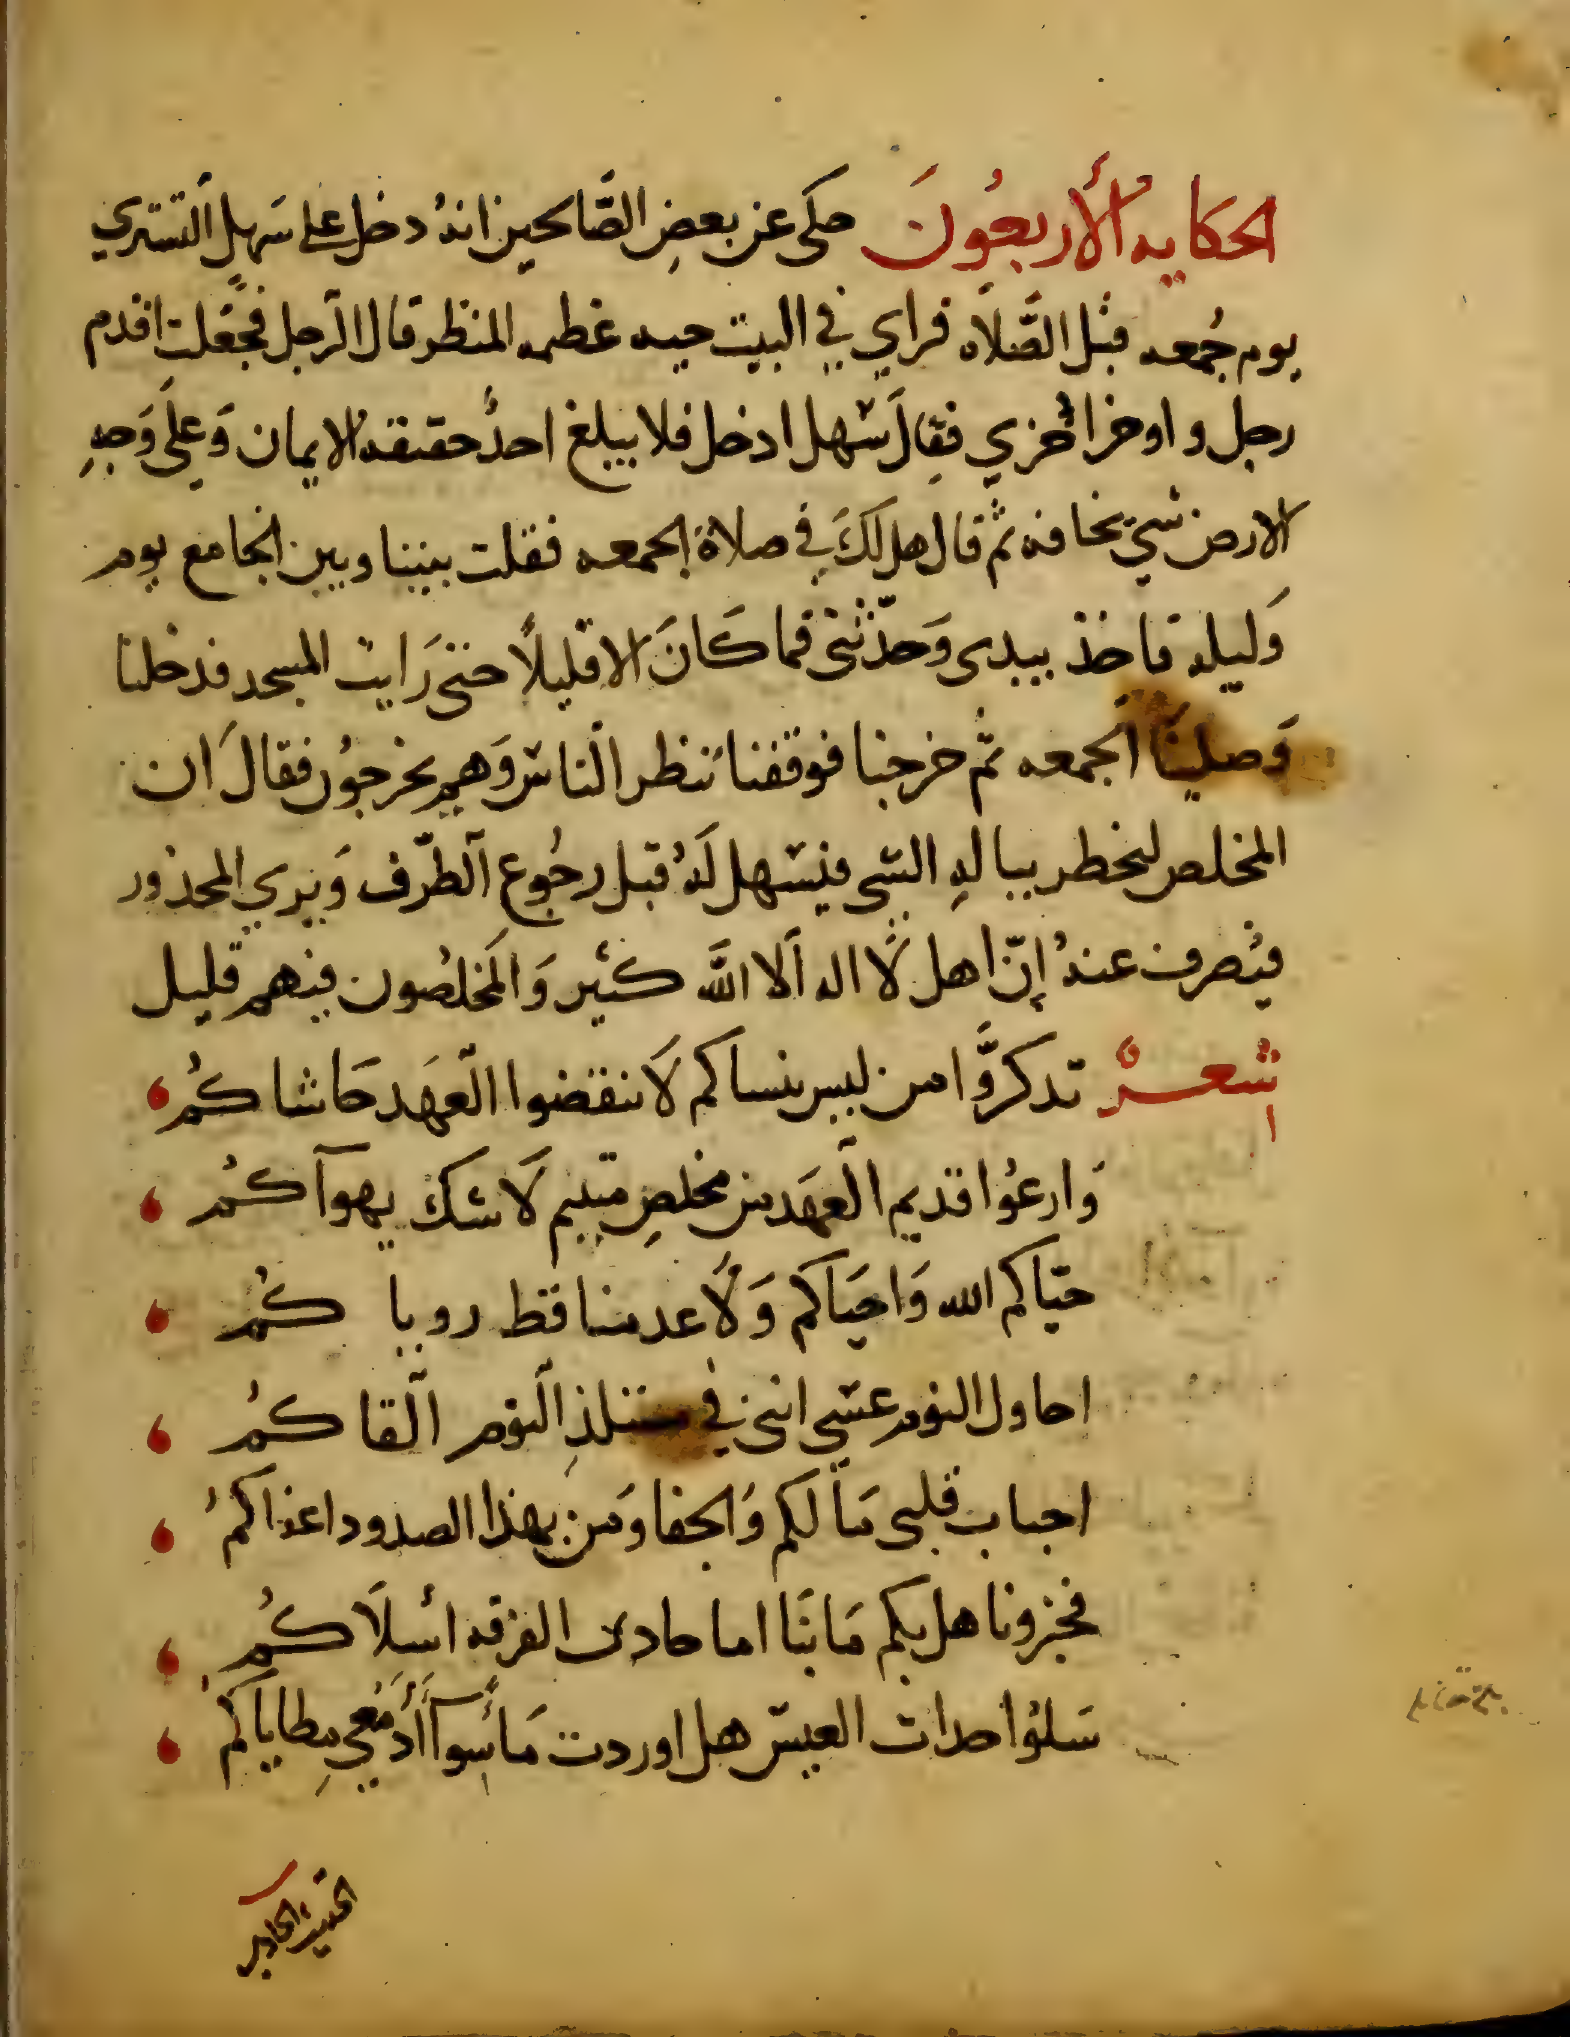 الحكاية الأربعُونَ حكى عن بعضِ الصَّالحين انهُ دخل على سَهلٍ التستري
يوم جُمعه قبل الصَّلاة فراي في البيت حيه عظيمه المنظر قال الرجل فجَعَلت اقدم
رجل واوخر اخري فقالَ سَهل ادخل فلا يبلغ احدُ حقيقة الايمان وَعلى وَجهِ
الارض شيَ يخافه ثم قال هل لَكَ في صلاة الجمعه فقلت بيننا وبين الجامع يوم
وَليله فاخذ بيدى وَحدّثنى فما كَانَ الا قليلاً حتى رَايت المسجد فدخلنا
وَصلينَا الجمعه ثم خرجنا فوقفنا ننظر الناس وَهم يخرجُون فقالَ ان
المخلص ليخطر ببالهِ الشى فيسَهل لَهُ قبل رجُوع الطّرف وَيري المحذور
فيُصرف عنهُ إنّ اهل لا اله الا الله كثير وَالمخلصُون منهم قليل
شعر تدكرَّوا من ليس ينساكم لاَ تنقضوا العَهد حَاشاكُم
وَارعُوا قديم العهَد من مخلصِ متيم لاَ شك يهواكُم
حيّاكم الله وَاحيَاكم وَلاَ عدمنا قط روياكُم
احاول النوم عسَي اننى في ستنلذِ النوم القاكُم
احباب قلبى مَا لكم وَالجفا وَمن بهذا الصدود اغراكمُ
فخبرونا هل بكم مَا بنَا اما حادى الفرقه اسلاَكُم
سَلوُا حدات العيسَ هل اوردت مَاً سوآ أدمُعي مطاياكمُ